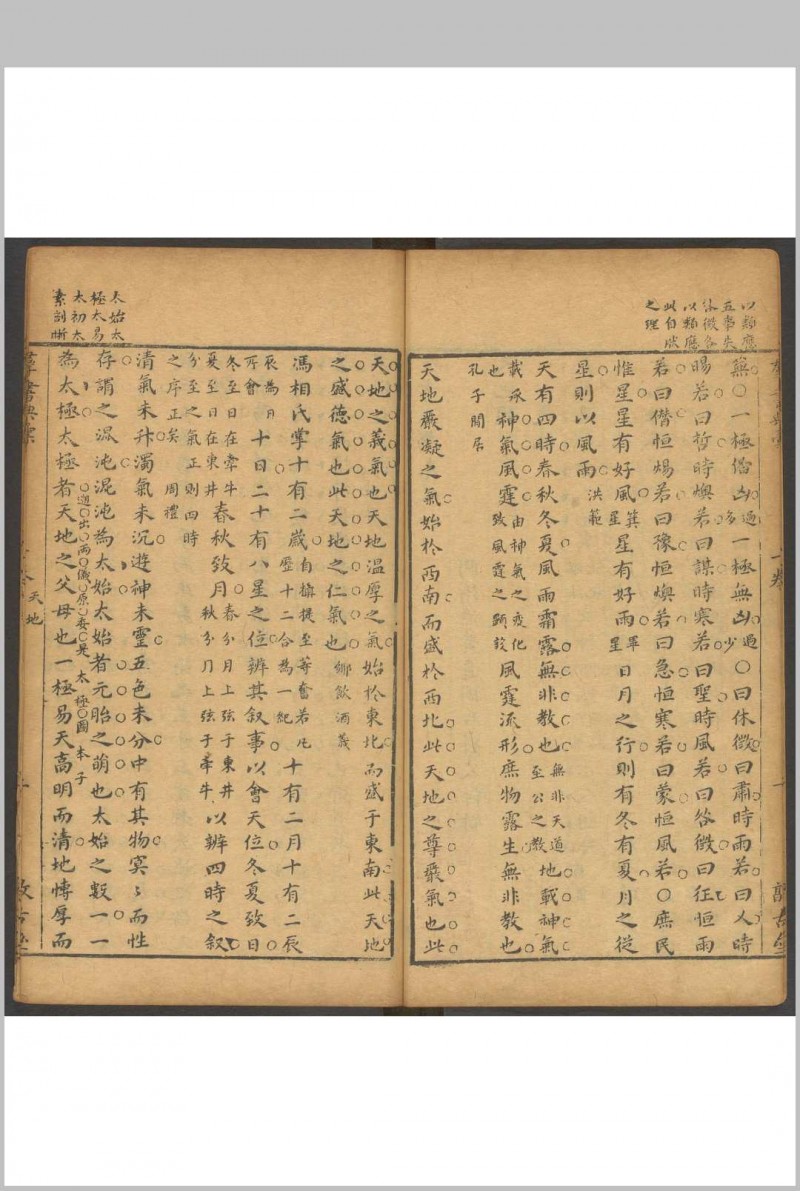 以類應
五事失
休徵各
以類應
此自成
之理
無○一極備凶過多一極無凶過少○曰休徵曰肅時雨若曰乂時
暘若曰哲時燠若曰謀時寒若曰聖時風若曰咎徵曰狂恒雨
若曰僭恒暘若曰豫恒燠若曰急恒寒若曰蒙恒風若○庶民
惟星星有好風箕星星有好雨畢星日月之行則有冬有夏月之從
星則以風雨洪範
天有四時春秋冬夏風雨霜露無非教也無非天道至公之教地載神氣
載承也神氣風霆由神氣之变化致風霆之顕設風霆流形庶物露生無非教也
孔子閒居
天地嚴凝之氣始於西南而盛於西北此天地之尊嚴氣也此
天地之義氣也天地温厚之氣始於東北而盛于東南此天地
之盛德氣也此天地之仁氣也鄉飲酒義
馮相氏掌十有二歲自攝提至奮若凡歷十二合為一紀十有二月十有二辰
辰為日月所會十日二十有八星之位辨其叙事以會天位冬夏致日
冬至日在牽牛夏至日在東井春秋致月春分月上弦于東井秋分月上弦于牽牛以辨四時之叙
分至之氣正則四時之序正矣 周禮
清氣未升濁氣未沉遊神未靈五色未分中有其物冥〻而性
存謂之混沌混沌為太始太始者元胎之萌也太始之數一一
為太極太極者天地之父母也一極易天高明而清地慱厚而
太始太
極太易
太初太
素剖晰
羣書典彙
卷
天地
敦古堂